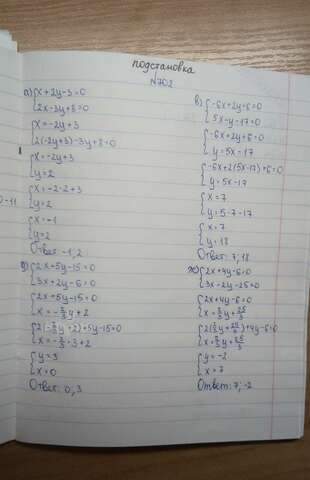 подстановка
№702
а) {x+2y-3=0
{2x-3y+8=0
{x=-2y+3
{2(-2y+3)-3y+8=0
{x=-2y+3
{y=2
{x=-2·2+3
{y=2
{x=-1
{y=2
Ответ: -1, 2
{2x+5y-15=0
{3x+2y-6=0
{2x+5y-15=0
{x=-⅔y+2
{2(-⅔y+2)+5y-15=0
{x=-⅔·3+2
{y=3
{x=0
Ответ: 0, 3
в) {-6x+2y-6=0
{5x-y-17=0
{-6x+2y+6=0
{y=5x-17
{-6x+2(5x-17)+6=0
{y=5x-17
{x=7
{y=5·7-17
{x=7
{y=18
Ответ: 7, 18
ж) {2x+4y-6=0
{3x-2y-25=0
{2x+4y-6=0
{x=⅔y+25/3
{2(⅔y+25/3)+4y-6=0
{x=⅔y+25/3
{y=-2
{x=7
Ответ: 7; -2
0-11